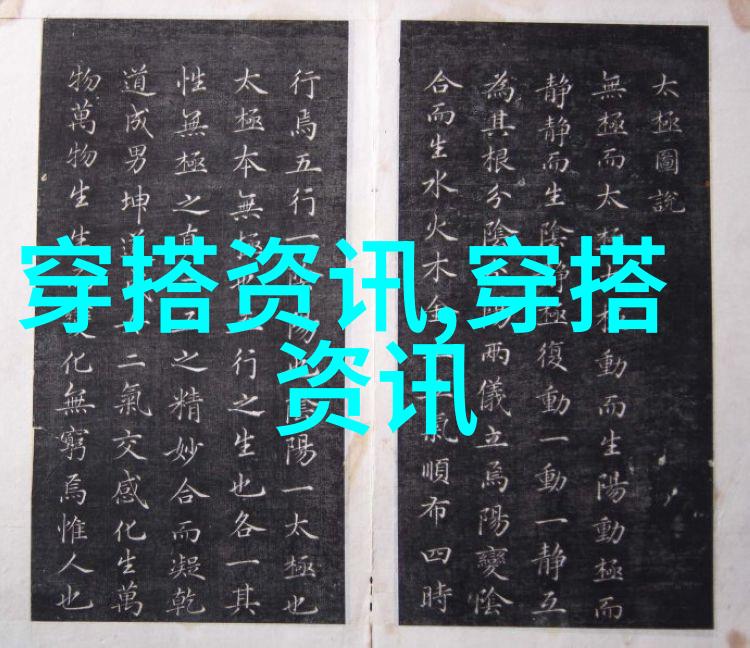 太極圖說
無極而太極動而生陽動極而
静静而生陰静極復動一動一静互
為其根分陰陽兩儀立焉陽變陰
合而生水火木金氣順布四時
行焉五行一陰陽陰陽一太極也
太極本無極行之生也各一其
性無極之真之精妙合而凝乾
道成男坤道二氣交感化生萬
物萬物生生變化無窮焉惟人也
穿搭资讯,穿搭
资讯